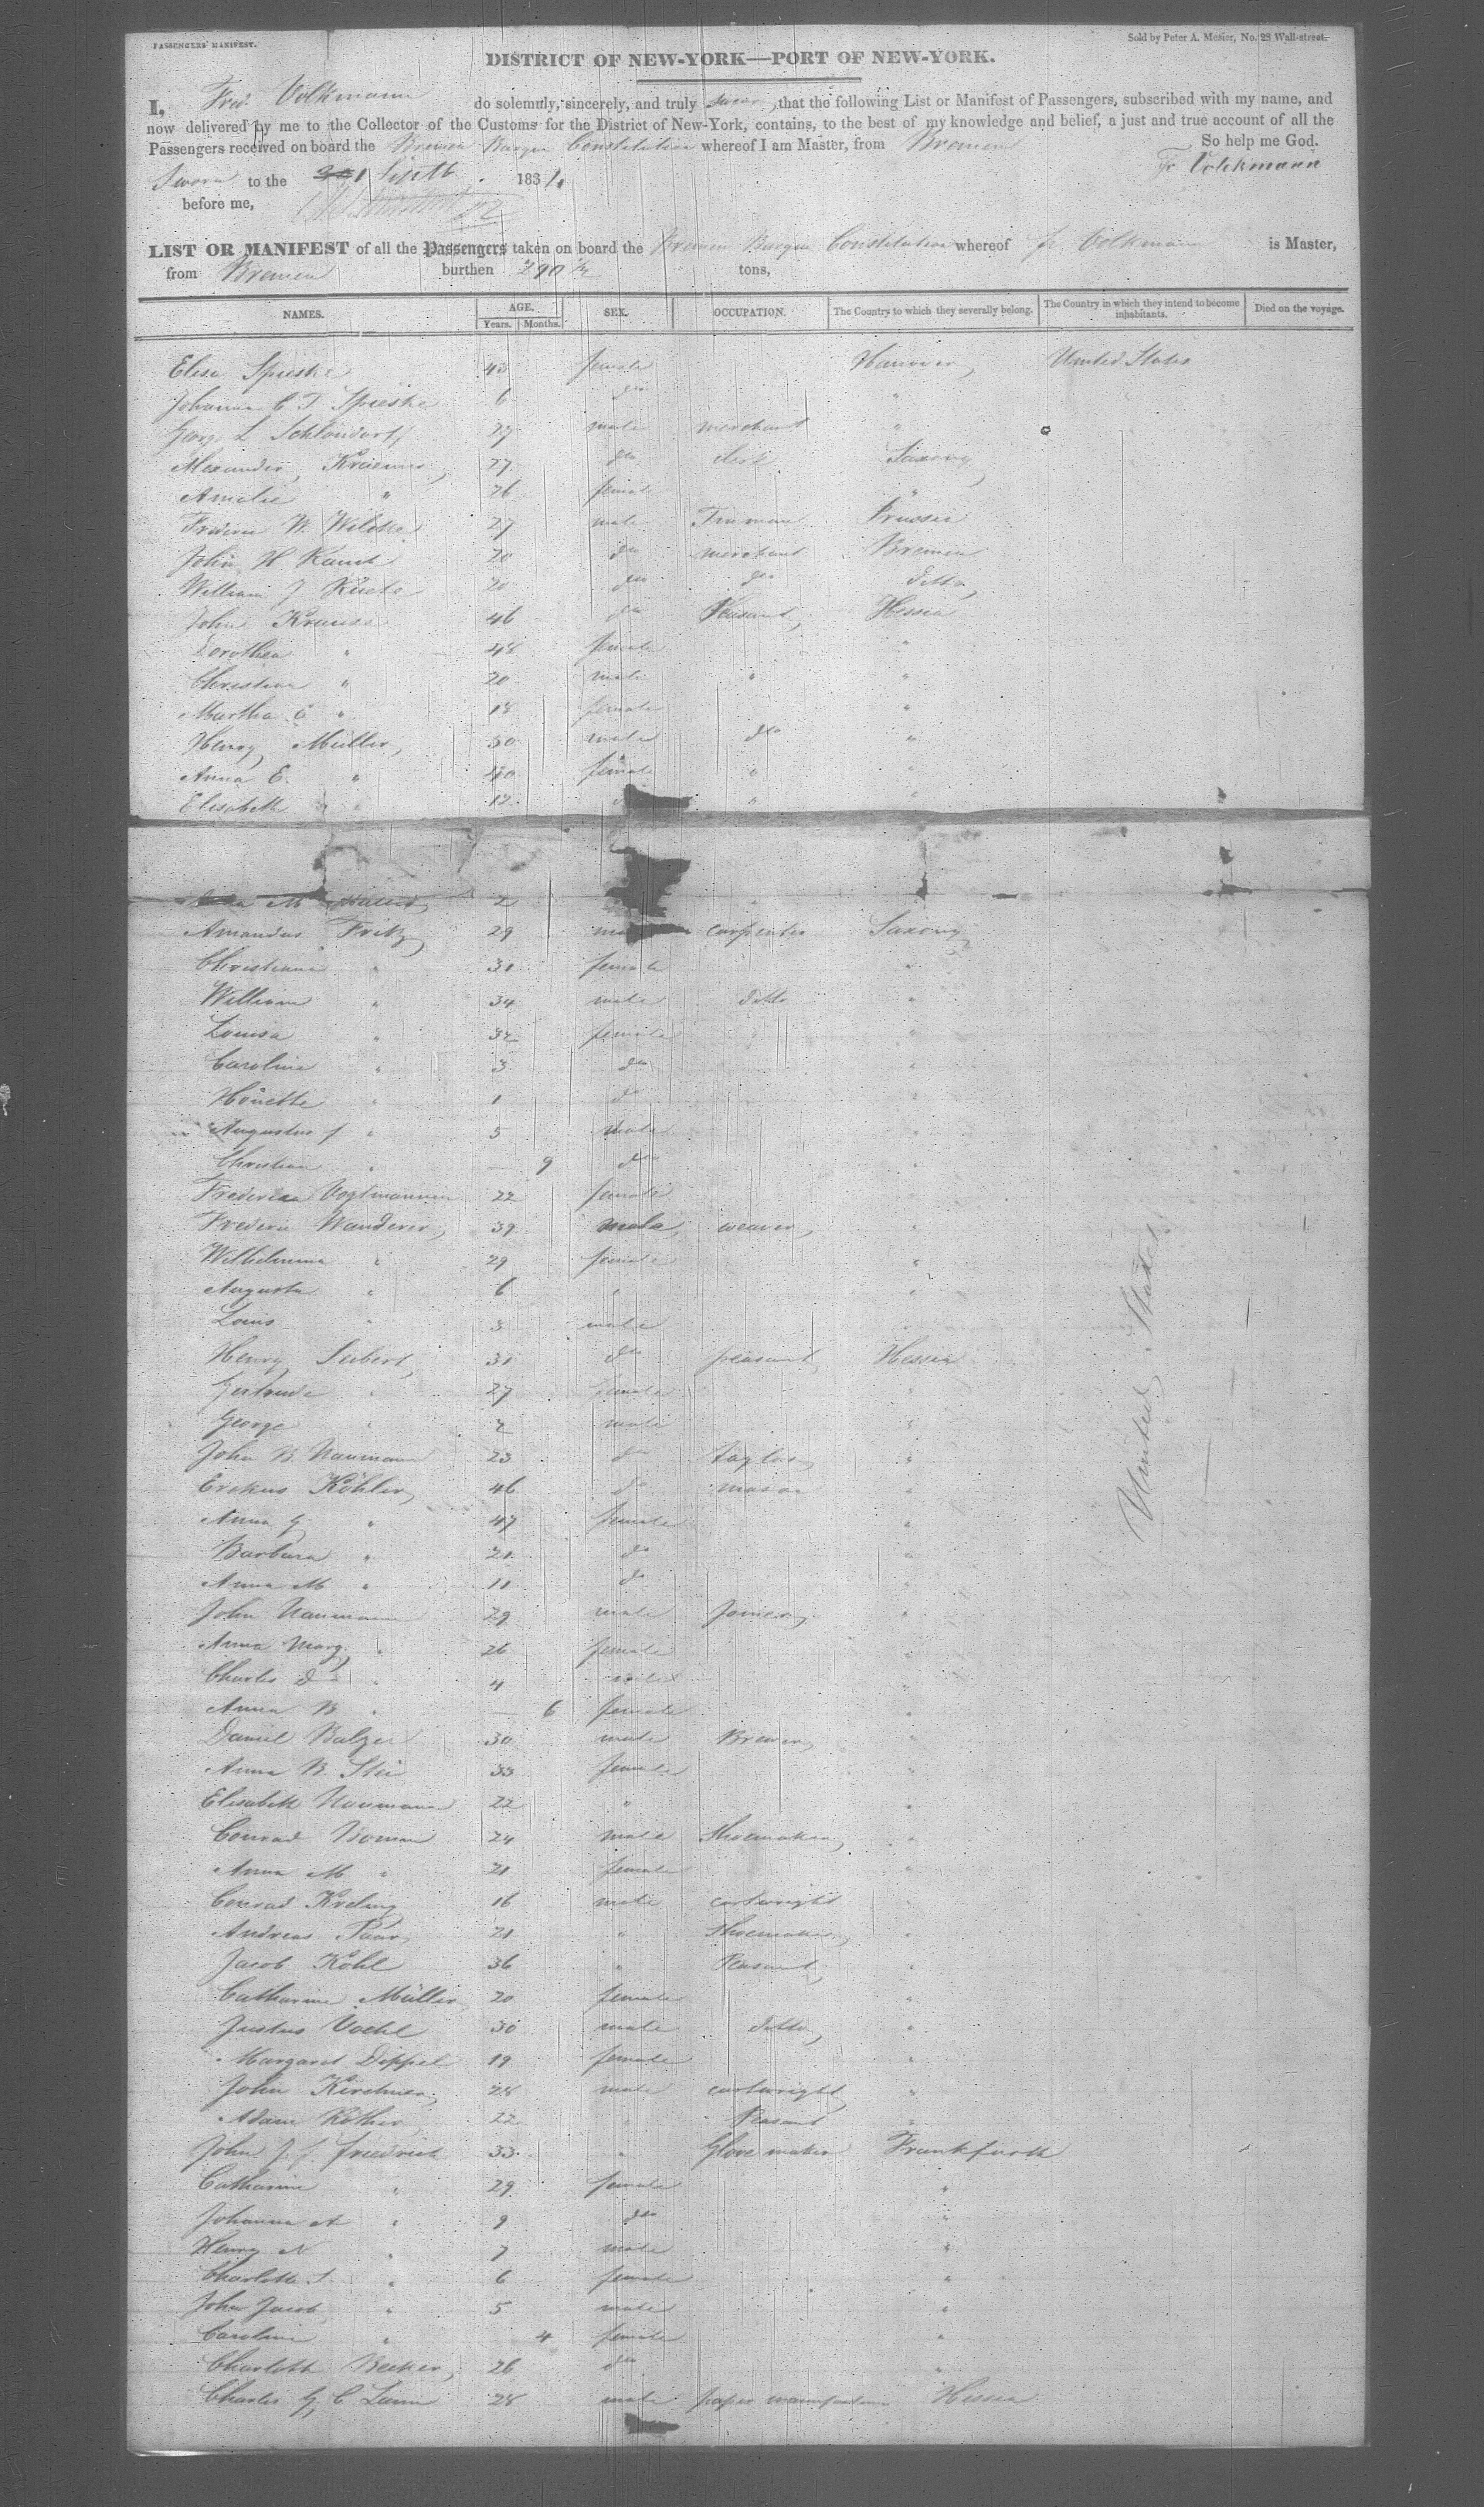 PASSENGERS' MANIFEST.
Sold by Peter A. Mesier, No. 28 Wall-street.
DISTRICT OF NEW-YORK—PORT OF NEW-YORK.
I, Fred. Volkmann do solemnly, sincerely, and truly swear, that the following List or Manifest of Passengers, subscribed with my name, and
now delivered by me to the Collector of the Customs for the District of New-York, contains, to the best of my knowledge and belief, a just and true account of all the
Passengers received on board the Bremen Barque Constitution whereof I am Master, from Bremen So help me God.
Sworn to the 1 Septb. 1834 Fr Volkmann
before me,
LIST OR MANIFEST of all the Passengers taken on board the Bremen Barque Constitution whereof Fr. Volkmann is Master,
from Bremen burthen 290 tons,
NAMES. AGE. SEX. OCCUPATION. The Country to which they severally belong. The Country in which they intend to become inhabitants. Died on the voyage.
Years. Months.
Elisa Spieske 43 female Hanover, United States
Johanna C T. Spieske 6 do "
George L Schlondorf, 27 male merchant "
Alexander Kraemer, 27 do clerk Saxony
Amalie " 26 female "
Frederic W. Wilcke 27 male Prussia
John H Rauch 20 do merchant Bremen
William J 20 do do ditto,
John Krause 46 do Peasant, Hessia
Dorothea " 48 female "
Christian " 20 male " "
Martha C " 18 female "
Henry Müller, 50 male do "
Anna E. " 40 female " "
Elisabeth " 12 "
M Müller, 2
Amandus Fritz, 29 male carpenter Saxony
Christiana " 31 female "
William " 34 male ditto "
Louisa " 32 female "
Caroline " 3 do "
" 1 do "
Augustus f " 5 male "
Christian " — 9 do "
Frederica Vogtmannn 22 female
Frederic Wanderer, 39 male, weaver, "
Wilhelmina " 29 female "
Augusta " 6 " "
Louis " 3 male
Henry Seibert, 31 do peasant Hessia
Gertrude " 27 female "
George " 2 male "
John B. Naumann 23 do Taylor, "
Erakus Köhler, 46 do mason "
Anna G " 47 female "
Barbara " 21 do "
Anna M " 11 do "
John Naumann 29 male Joiner, "
Anna Marg. " 26 female "
Charles D " 4 male "
Anna B " — 6 female "
Daniel Balzer 30 male Brewer, "
Anna B. 33 female "
Elisabeth Naumann 22 " "
Conrad 24 male Shoemaker, "
Anna M " 21 female "
Conrad Kreling 16 male cartwright "
Andreas Paar, 21 " Shoemaker, "
Jacob Kohl 36 " Peasant, "
Catharine Müller 20 female "
Justus Voehl 30 male ditto, "
Margaret Dippel 19 female "
John Kirchner, 28 male cartwright, "
Adam Köther, 22 " Peasant "
John J. G. Friedrich 33 " Glove maker Frankfurth
Catharine " 29 female "
Johanna A " 9 do "
Henry N " 7 male "
Charlotte S. " 6 female "
John Jacob " 5 male "
Caroline " 4 female "
Charlotte Becker, 26 do "
Charles G C 28 male paper manufacturer Hessia
United States